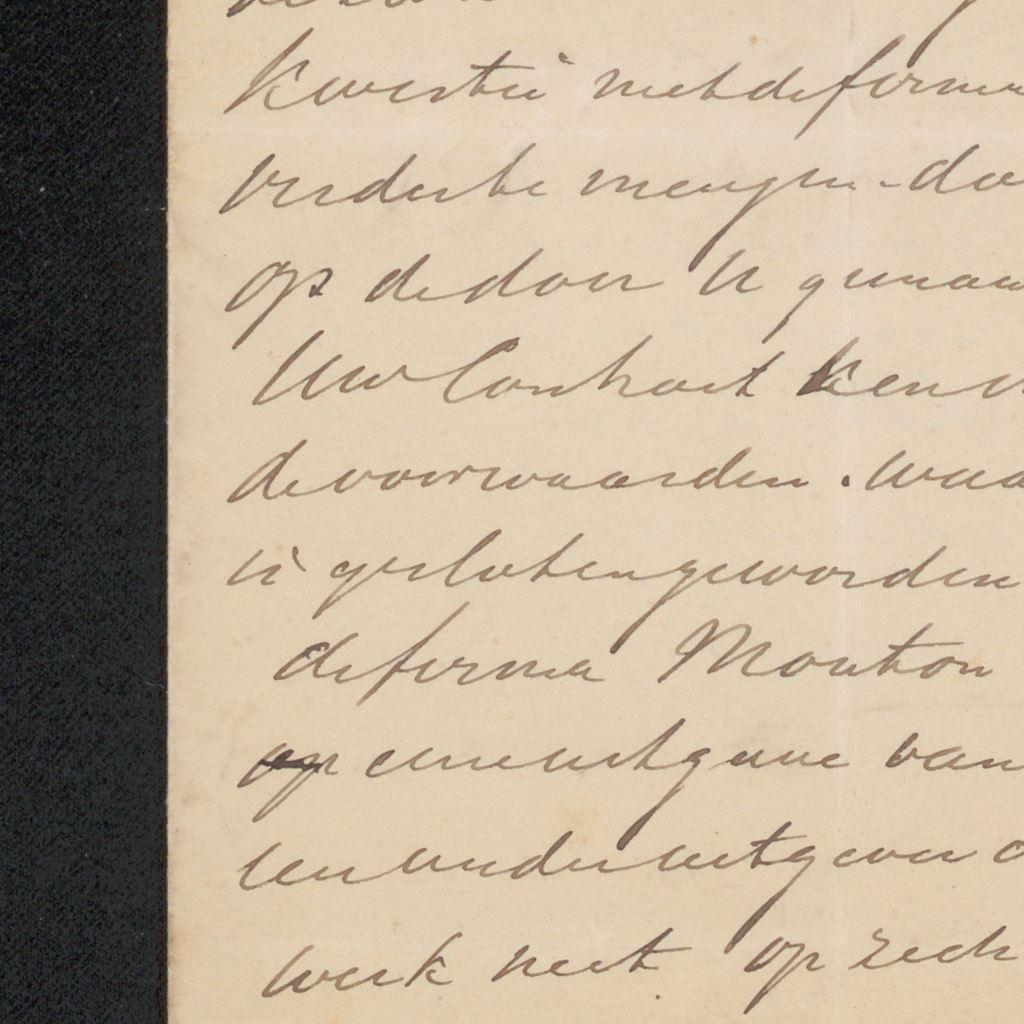 kwestie met de firma
verder te mengen - da
op de door U genaam
Uw Contract ken
de voorwaarden. waa
is gesloten geworden
de firma Mouton
op eene uitgave van
een ander uitgever
werk niet op zich